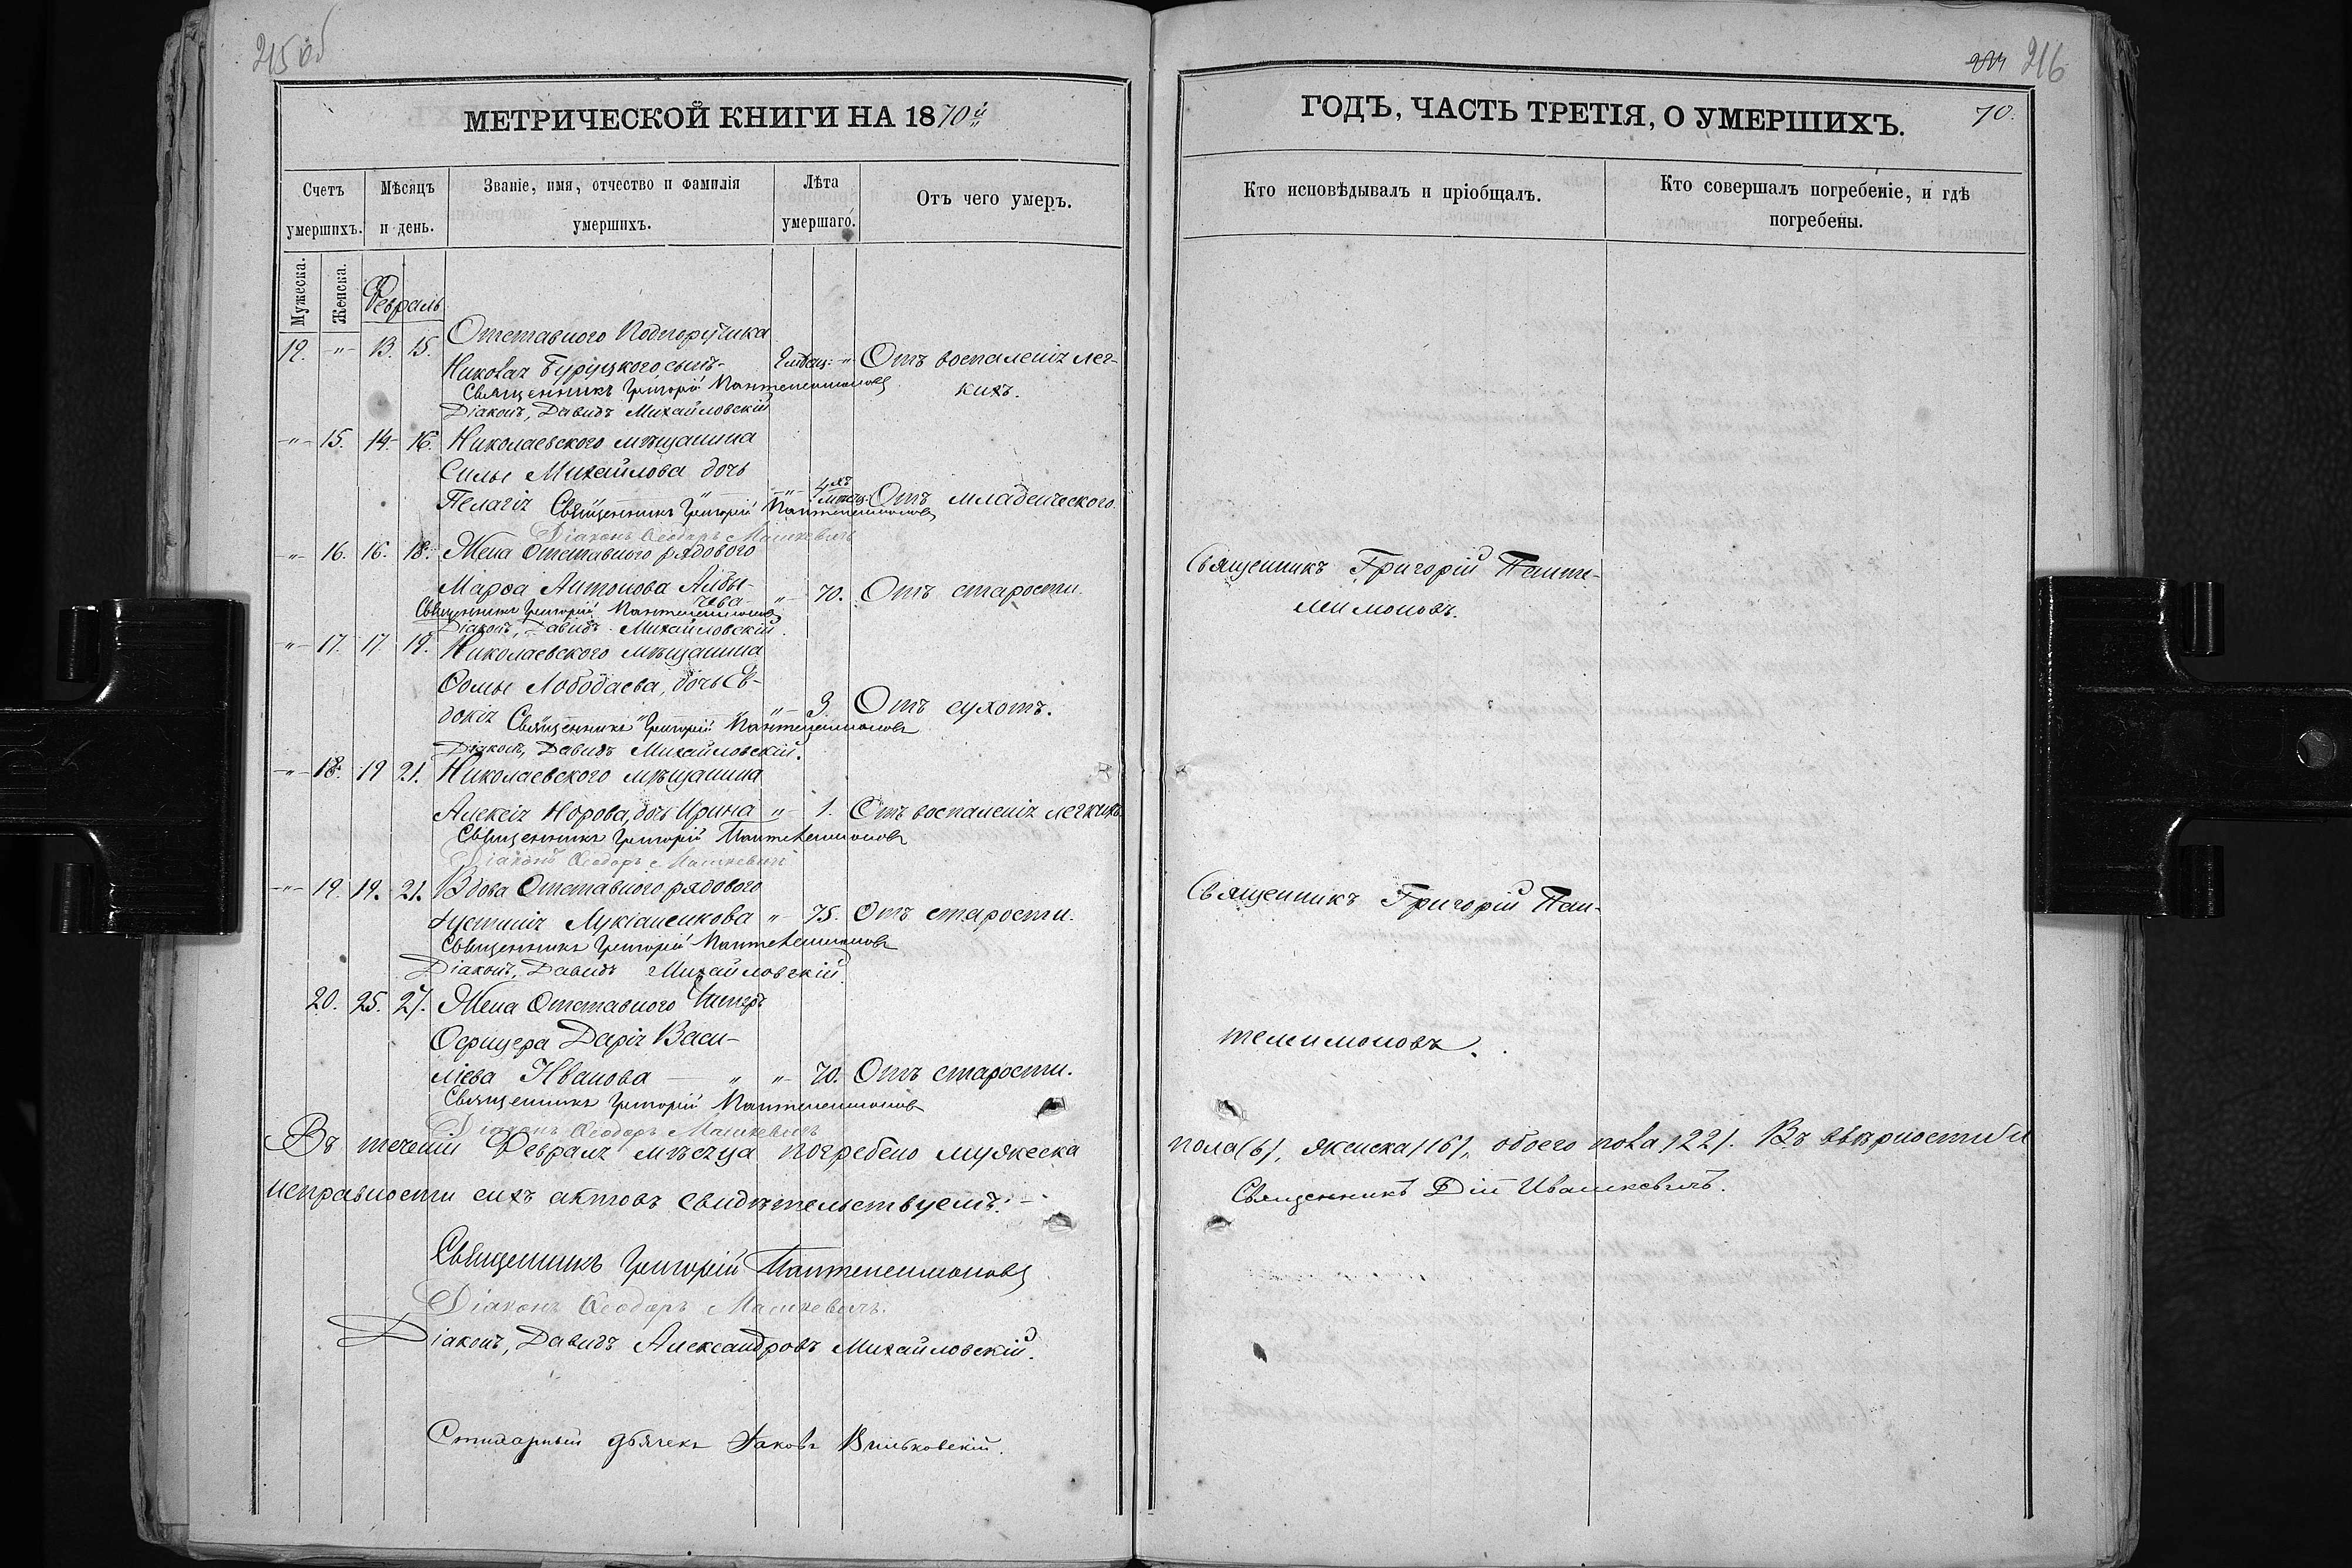 215 об
МЕТРИЧЕСКОЙ КНИГИ НА 1870й
Счетъ умершихъ.
Мѣсяцъ и день.
Званіе, имя, отчество и фамилія умершихъ.
Лѣта умершаго.
Отъ чего умеръ.
Мужеска.
Женска.
Февраль
Отставного Подпоручика
12. -"- 13. 15.
Николая сынъ- Отъ воспаленія лег-
Священникъ Григорій Пантелеимоновъ кихъ.
Діаконъ, Давидъ Михайловскій
-"- 15. 14. 16. Николаевского мѣщанина
Силы Михайлова дочь
Пелагія -"- 4хъ мѣсяц. Отъ младенческого.
Священникъ Григорій Пантелеимоновъ
Діаконъ Ѳеодоръ Машкевичъ
-"- 16. 16. 18. Жена Отставного рядового
Марѳа Антонова
-"- 70. Отъ старости.
Священникъ Григорій Пантелеимоновъ
Діаконъ, Давидъ Михайловскій.
-"- 17. 17. 19. Николаевского мѣщанина
Ѳомы Лободаева, дочь Ев-
докія -"- 3. Отъ сухотъ.
Священникъ Григорій Пантелеимоновъ
Діаконъ, Давидъ Михайловскій.
-"- 18. 19 21. Николаевского мѣщанина
Алексія Норова, дочь Ирина "- 1. Отъ воспаленія легкихъ
Священникъ Григорій Пантелеимоновъ
Діаконъ Ѳеодоръ Машкевичъ
-"- 19. 19. 21. Вдова Отставного рядового
Іустинія Лукіаненкова "- 75. Отъ старости.
Священникъ Григорій Пантелеимоновъ
Діаконъ, Давидъ Михайловскій.
20. 25. 27. Жена Отставного Унтеръ
Офицера Дарія Васи-
ліева Иванова — " "- 70. Отъ старости.
Священникъ Григорій Пантелеимоновъ
Діаконъ Ѳеодоръ Машкевичъ
Въ теченіи Февраля мѣсяца погребено мужеска
исправности сихъ актовъ свидѣтельствуемъ.-
Священникъ Григорій Пантелеимоновъ
Діаконъ Ѳеодоръ Машкевичъ.
Діаконъ, Давидъ Александровъ Михайловскій.
Стихарный дьячекъ Іаковъ Вильковскій.
216
ГОДЪ, ЧАСТЬ ТРЕТІЯ, О УМЕРШИХЪ.
70.
Кто исповѣдывалъ и пріобщалъ.
Кто совершалъ погребеніе, и гдѣ погребены.
Священникъ Григорій Панте-
леимоновъ.
Священникъ Григорій Пан-
телеимоновъ.
пола (6), женска (16), обоего пола (22). Въ вѣрности и
Священникъ Дій Ивашкевичъ.